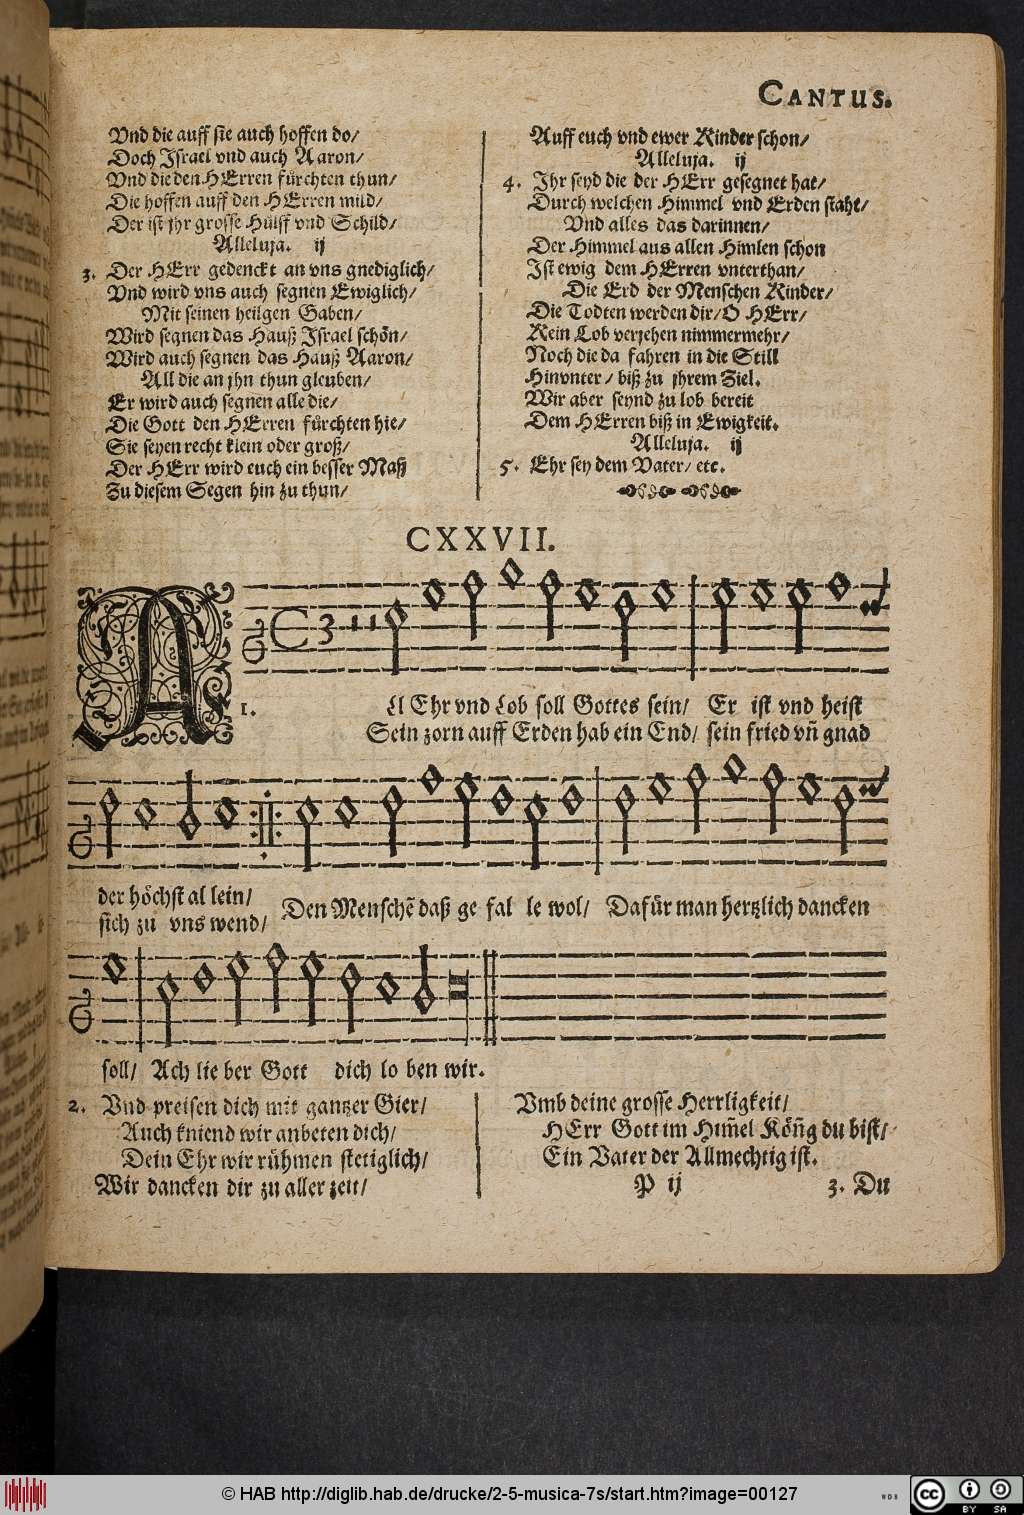 CANTUS.
Vnd die auff sie auch hoffen do/
Doch Israel vnd auch Aaron/
Vnd die den HErren fürchten thun/
Die hoffen auff den HErren mild/
Der ist jhr grosse Hülff vnd Schild/
Alleluja. ij
3. Der HErr gedenckt an vns gnediglich/
Vnd wird vns auch segnen Ewiglich/
Mit seinen heilgen Gaben/
Wird segnen das Hauß Israel schön/
Wird auch segnen das Hauß Aaron/
All die an jhn thun gleuben/
Er wird auch segnen alle die/
Die Gott den HErren fürchten hie/
Sie seyen recht klein oder groß/
Der HErr wird euch ein besser Maß
Zu diesem Segen hin zu thun/
Auff euch vnd ewer Kinder schon/
Alleluja. ij
4. Ihr seyd die der HErr gesegnet hat/
Durch welchen Himmel vnd Erden staht/
Vnd alles das darinnen/
Der Himmel aus allen Himlen schon
Ist ewig dem HErren vnterthan/
Die Erd der Menschen Kinder/
Die Todten werden dir/ O HErr/
Kein Lob verjehen nimmermehr/
Noch die da fahren in die Still
Hinvnter/ biß zu jhrem Ziel.
Wir aber seynd zu lob bereit
Dem HErren biß in Ewigkeit.
Alleluja. ij
5. Ehr sey dem Vater/ etc.
CXXVII.
1. All Ehr vnd Lob soll Gottes sein/ Er ist vnd heist
Sein zorn auff Erden hab ein End/ sein fried vñ gnad
der höchst al lein/
sich zu vns wend/
Den Menschē daß ge fal le wol/ Dafür man hertzlich dancken
soll/ Ach lie ber Gott dich lo ben wir.
2. Vnd preisen dich mit gantzer Gier/
Auch kniend wir anbeten dich/
Dein Ehr wir rühmen stetiglich/
Wir dancken dir zu aller zeit/
Vmb deine grosse Herrligkeit/
HErr Gott im Him̃el Köñg du bist/
Ein Vater der Allmechtig ist.
P ij
3. Du
© HAB http://diglib.hab.de/drucke/2-5-musica-7s/start.htm?image=00127
WDB
cc BY SA